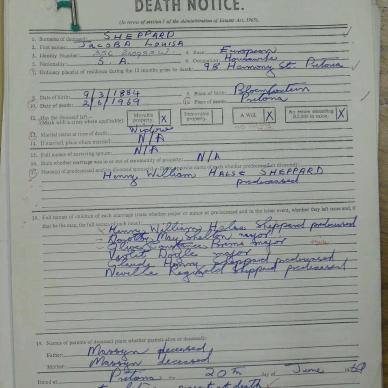 DEATH NOTICE.
(In terms of section 7 of the Administration of Estates Act, 1965).
1. Surname of deceased: SHEPPARD
2. First names: JACOBA LOUISA
3. Identity Number 4. Race European
5. Nationality S. A. 6. Occupation Housewife
7. Ordinary places of residence during the 12 months prior to death: 98 Harmony St. Pretoria
8. Date of birth 9/3/1884 9. Place of birth Bloemfontein
10. Date of death 2/6/1969 Pretoria
Has the deceased left? Movable property. X Immovable property. A Will. X
(Mark with a cross where applicable)
13. Marital status at time of death: Widow
14. If married, place where married: N/A
15. Full names of surviving spouse: N/A
16. State whether marriage was in or out of community of property: N/A
Henry William HALSE SHEPPARD
predeceased
18. Full names of children of each marriage (state whether major or minor or predeceased and in the latter event, whether they left issue and, if
Henry William Halse Sheppard predeceased
Dorothy May Shelton major
Olive Constance Burns major
Violet Doille major
Claude Henry Sheppard predeceased
Neville Reginald Sheppard predeceased
19. Names of parents of deceased (state whether parents alive or deceased):
Father: Massyn deceased
Mother: Massyn deceased
Dated at Pretoria 20th day of June 1969
present at death